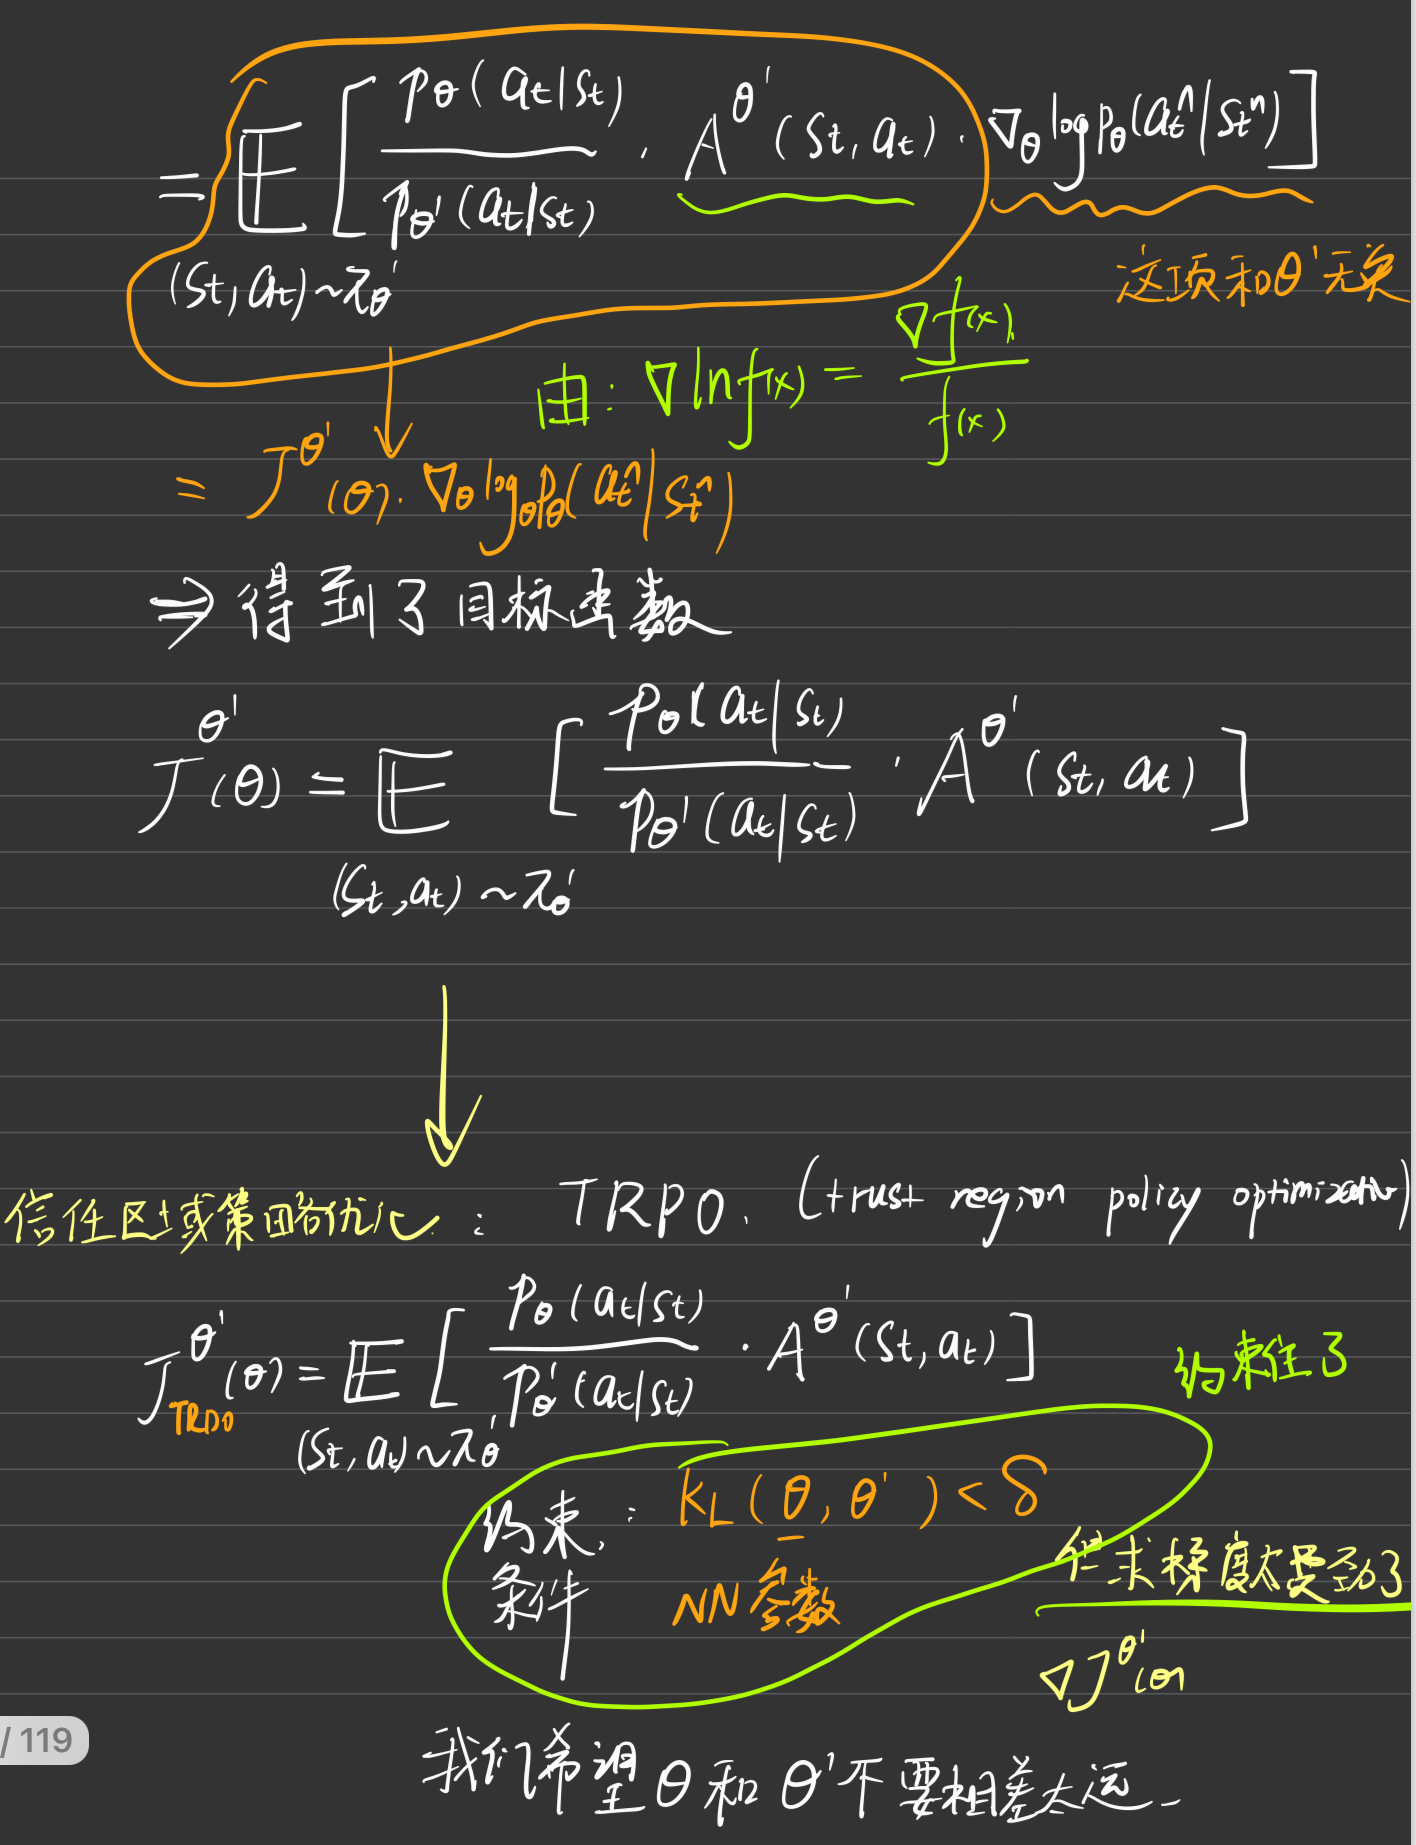 = 𝔼 [ pθ(at|st) / pθ'(at|st) · A^θ'(st, at) · ∇θ log pθ(at^n|st^n) ]
(st, at)~πθ'
这项和θ'无关
由: ∇ln f(x) = ∇f(x) / f(x)
= J^θ'(θ) · ∇θ log pθ(at^n|st^n)
⇒ 得到了目标函数
J^θ'(θ) = 𝔼 [ pθ(at|st) / pθ'(at|st) · A^θ'(st, at) ]
(st, at) ~ πθ'
信任区域策略优化: TRPO. (trust region policy optimization)
J^θ'_TRPO(θ) = 𝔼 [ pθ(at|st) / pθ'(at|st) · A^θ'(st, at) ]
(st, at)~πθ'
约束住了
约束条件: KL(θ, θ') < δ
NN参数
但求梯度太费劲了
∇J^θ'(θ)
/ 119
我们希望θ和θ'不要相差太远